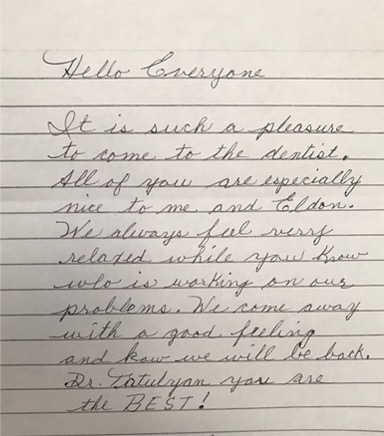 Hello Everyone
It is such a pleasure
to come to the dentist.
All of you are especially
nice to me and Eldon.
We always feel verry
relaxed while you know
who is working on our
problems. We come away
with a good feeling
and kow we will be back.
Dr. Tatulyan you are
the BEST!